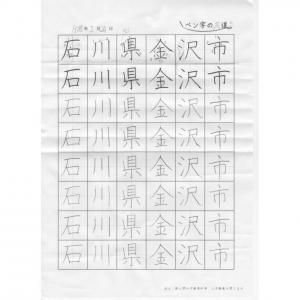 ペン字の
石川県金沢市
石川県金沢市
石川県金沢市
石川県金沢市
石川県金沢市
石川県金沢市
石川県金沢市
石川県金沢市